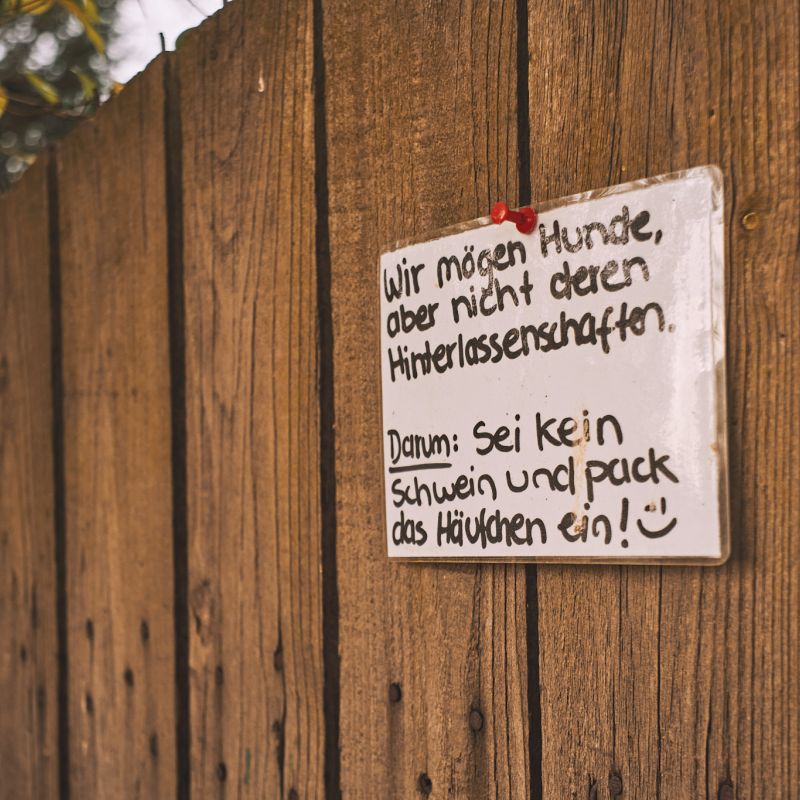 Wir mögen Hunde,
aber nicht deren
Hinterlassenschaften.
Darum: Sei kein
Schwein und pack
das Häufchen ein! :)